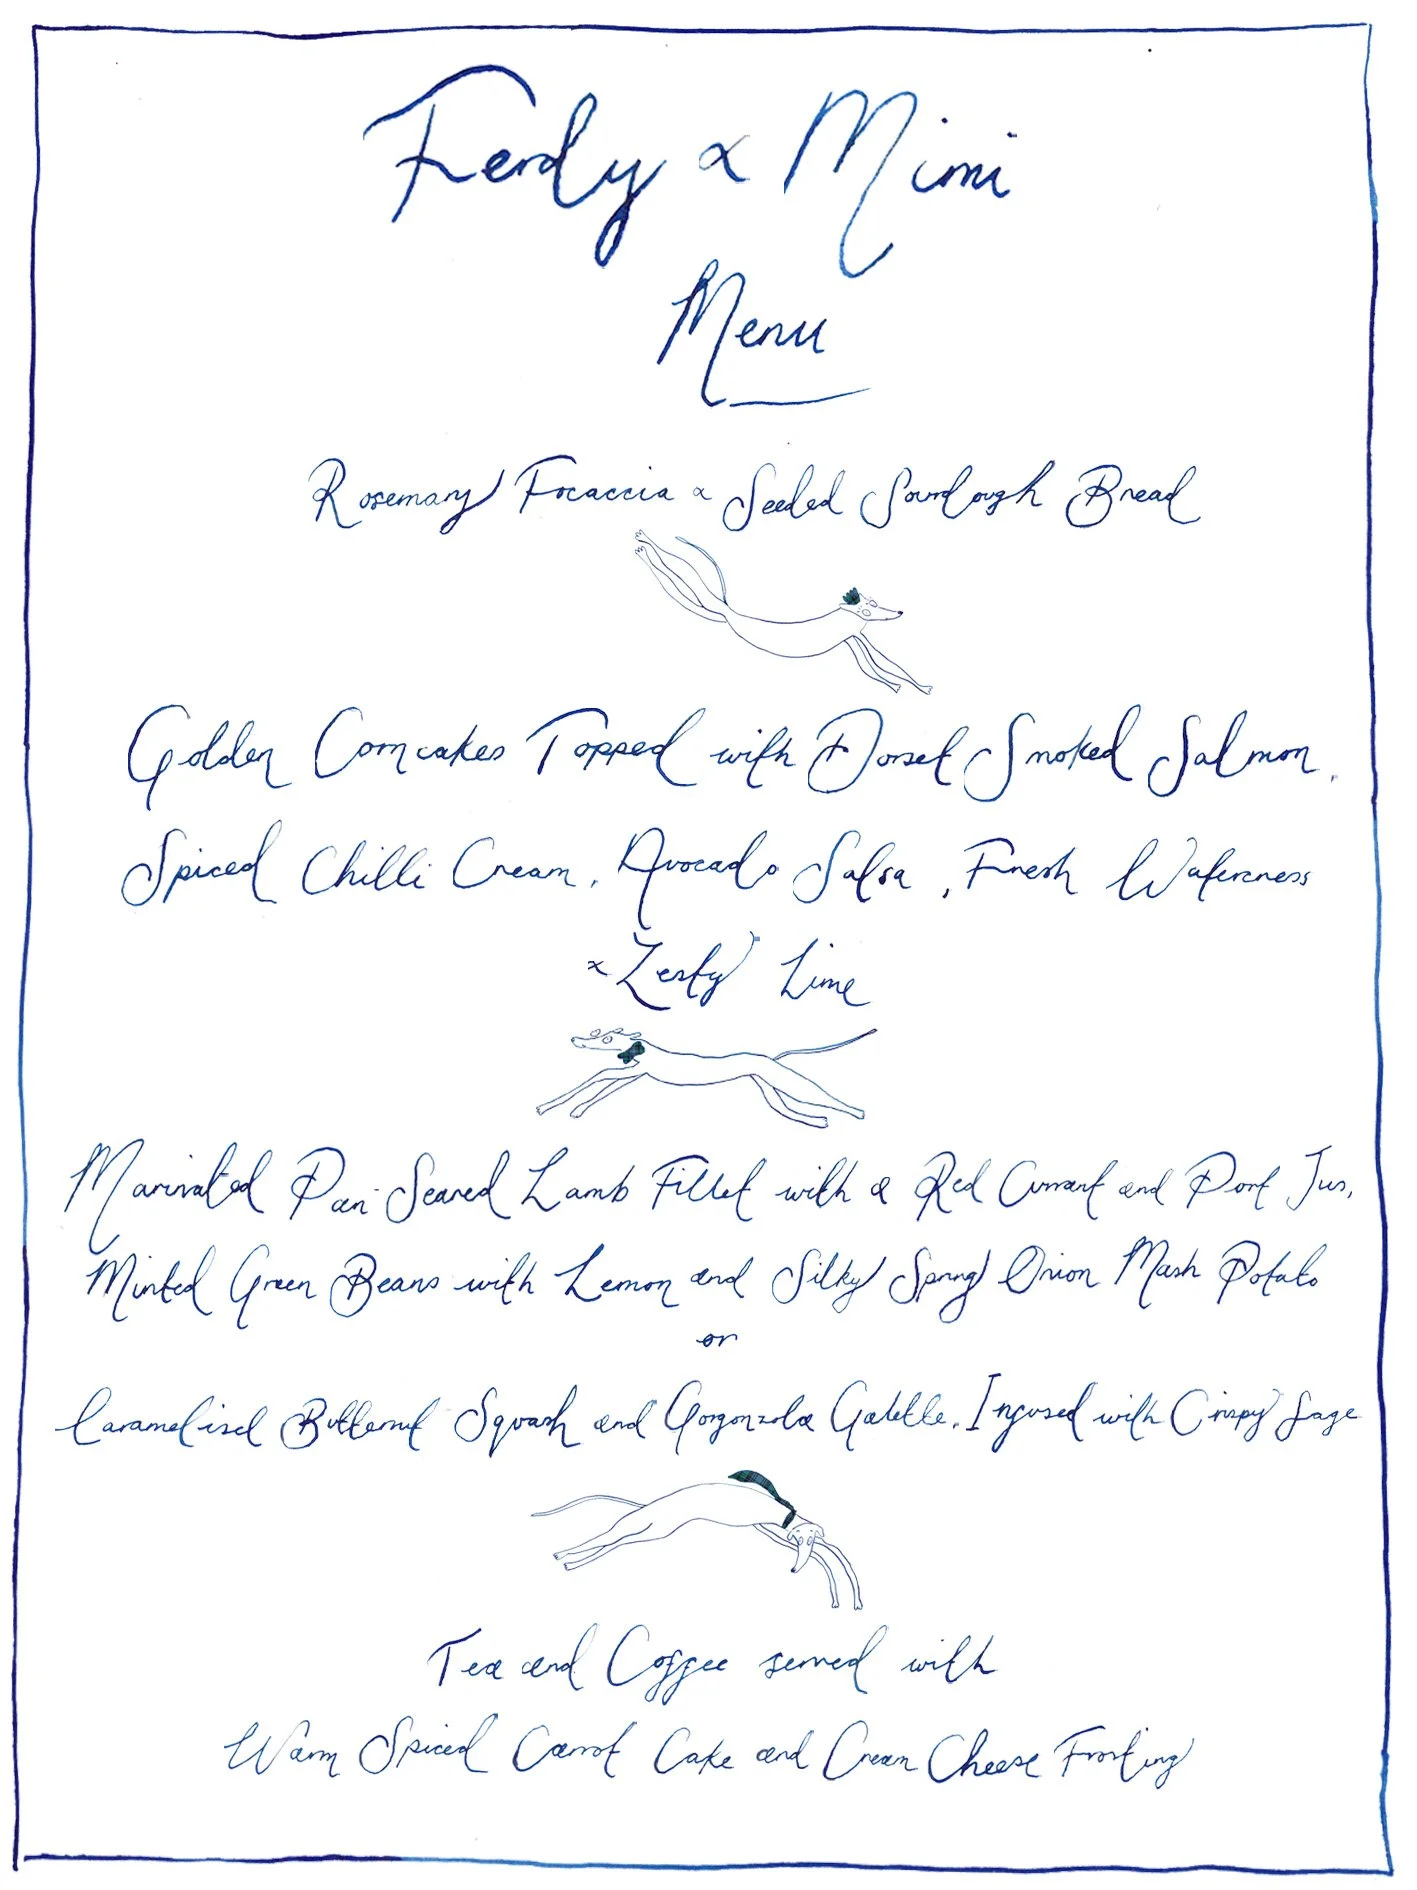 Ferdy & Mimi
Menu
Rosemary Focaccia & Seeded Sourdough Bread
Golden Corncakes Topped with Dorset Smoked Salmon,
Spiced Chilli Cream, Avocado Salsa, Fresh Watercress
& Zesty Lime
Marinated Pan-Seared Lamb Fillet with a Red Currant and Port Jus,
Minted Green Beans with Lemon and Silky Spring Onion Mash Potato
or
Caramelised Butternut Squash and Gorgonzola Galette, Infused with Crispy Sage
Tea and Coffee served with
Warm Spiced Carrot Cake and Cream Cheese Frosting